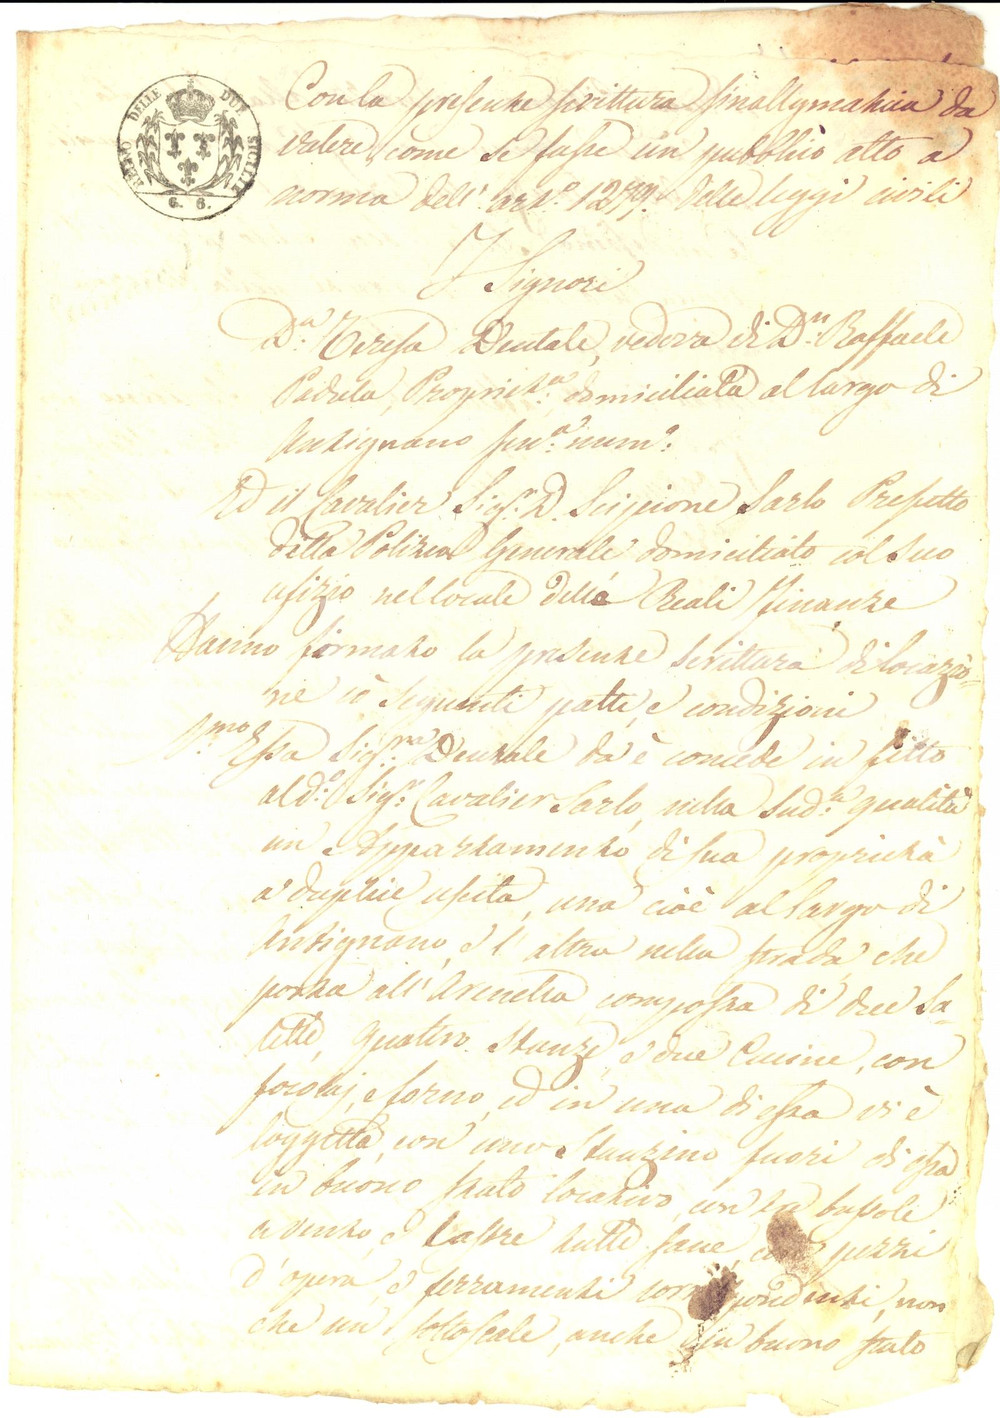 REGNO DELLE DUE SICILIE
G. 6.
Con la presente scrittura sinallagmatica da
valere come se fusse un pubblico atto a
norma dell' art.º 1277. delle leggi civili
I Signori
D.ª Teresa Dentale, vedova di D.n Raffaele
Padula, Propriet.ª domiciliata al largo di
Antignano sen.ª num.º
Ed il Cavalier Sig.r D. Scipione Sarlo Prefetto
della Polizia Generale domiciliato col suo
ufizio nel locale delle Reali Finanze
Hanno firmato la presente scrittura di locazio-
ne co' seguenti patti, e condizioni
P.mo Essa Sig.ra Dentale dà è concede in fitto
al d.º Sig.r Cavalier Sarlo, nella sud.ª qualità
un Appartamento di sua proprietà
a duplice uscita, una cioè al largo di
Antignano, e l' altra nella strada, che
porta all' Arenella composta di due Sa-
lette, quattro Stanze, e due Cucine, con
focolaj, e forno, ed in una di essa vi è
loggetta, con uno Stanzino fuori di essa
in buono stato locativo, con tre bussole
a vento, e lastre tutte sane, con pezzi
d' opera, e ferramenti corrispondenti, non
che un sottoscale, anche in buono stato